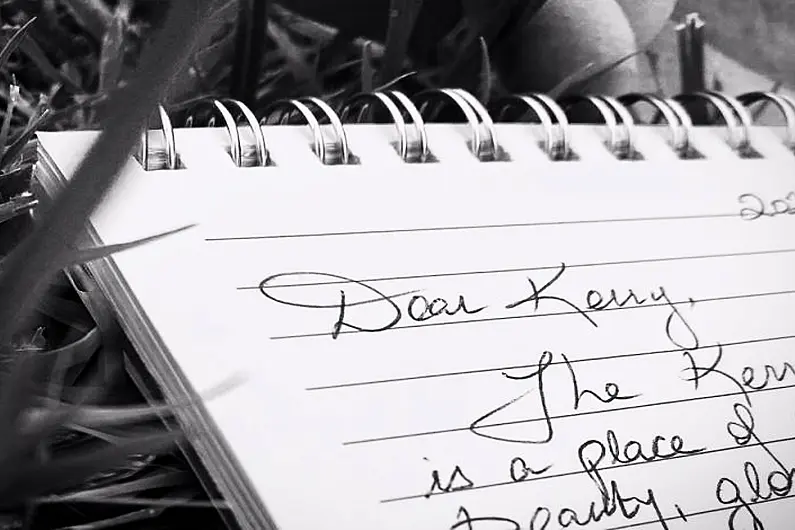 202
Dear Kerry,
The Kerr
is a place of
beauty, glo